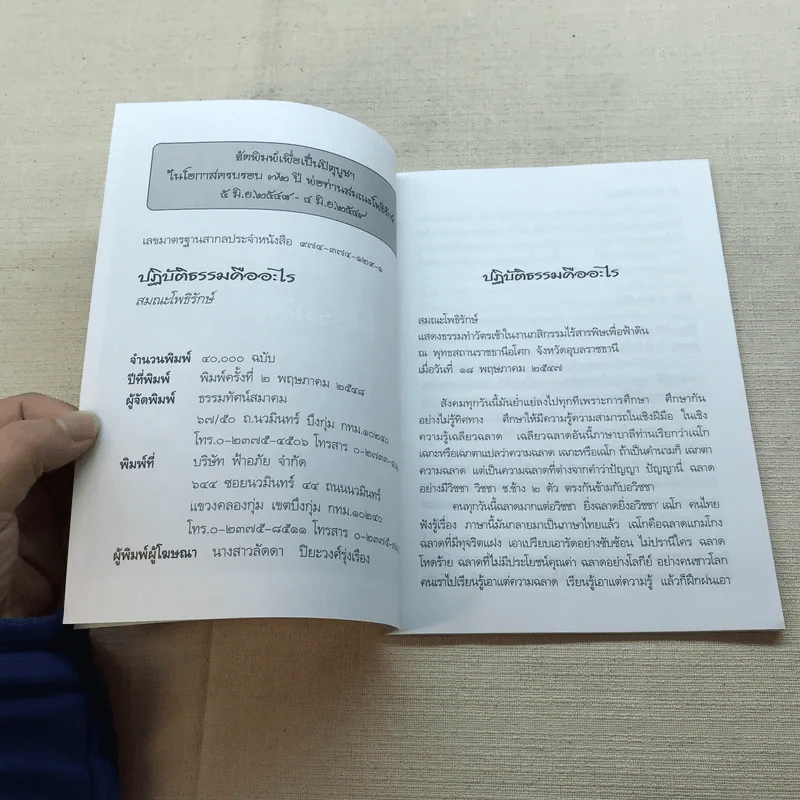 จัดพิมพ์เพื่อเป็นปิตุบูชา
ในโอกาสครบรอบ ๗๒ ปี พ่อท่านสมณะโพธิรักษ์
๕ มิ.ย.๒๕๔๗ - ๔ มิ.ย.๒๕๔๙
เลขมาตรฐานสากลประจำหนังสือ ๙๗๔-๓๗๔-๑๒๙-๑
ปฏิบัติธรรมคืออะไร
สมณะโพธิรักษ์
จำนวนพิมพ์ ๔๐,๐๐๐ ฉบับ
ปีที่พิมพ์ พิมพ์ครั้งที่ ๒ พฤษภาคม ๒๕๔๘
ผู้จัดพิมพ์ ธรรมทัศน์สมาคม
๖๗/๕๐ ถ.นวมินทร์ บึงกุ่ม กทม.๑๐๒๔๐
โทร.๐-๒๓๗๕-๔๕๐๖ โทรสาร
พิมพ์ที่ บริษัท ฟ้าอภัย จำกัด
๖๔๔ ซอยนวมินทร์ ๔๔ ถนนนวมินทร์
แขวงคลองกุ่ม เขตบึงกุ่ม กทม.๑๐๒๔๐
โทร.๐-๒๓๗๕-๘๕๑๑ โทรสาร
ผู้พิมพ์ผู้โฆษณา นางสาวลัดดา ปิยะวงศ์รุ่งเรือง
ปฏิบัติธรรมคืออะไร
สมณะโพธิรักษ์
แสดงธรรมทำวัตรเช้าในงานกสิกรรมไร้สารพิษเพื่อฟ้าดิน
ณ พุทธสถานราชธานีอโศก จังหวัดอุบลราชธานี
เมื่อวันที่ ๑๘ พฤษภาคม ๒๕๔๗
สังคมทุกวันนี้มันย่ำแย่ลงไปทุกทีเพราะการศึกษา ศึกษากัน
อย่างไม่รู้ทิศทาง ศึกษาให้มีความรู้ความสามารถในเชิงฝีมือ ในเชิง
ความรู้เฉลียวฉลาด เฉลียวฉลาดอันนี้ภาษาบาลีท่านเรียกว่าเฉโก
เฉกะหรือเฉกตาแปลว่าความฉลาด เฉกะหรือเฉโก ถ้าเป็นคำนามก็ เฉกตา
ความฉลาด แต่เป็นความฉลาดที่ต่างจากคำว่าปัญญา ปัญญานี่ ฉลาด
อย่างมีวิชชา วิชชา ช.ช้าง ๒ ตัว ตรงกันข้ามกับอวิชชา
คนทุกวันนี้ฉลาดมากแต่อวิชชา ยิ่งฉลาดยิ่งอวิชชา เฉโก คนไทย
ฟังรู้เรื่อง ภาษานี้มันกลายมาเป็นภาษาไทยแล้ว เฉโกคือฉลาดแกมโกง
ฉลาดที่มีทุจริตแฝง เอาเปรียบเอารัดอย่างซับซ้อน ไม่ปรานีใคร ฉลาด
โหดร้าย ฉลาดที่ไม่มีประโยชน์คุณค่า ฉลาดอย่างโลกีย์ อย่างคนชาวโลก
คนเราไปเรียนรู้เอาแต่ความฉลาด เรียนรู้เอาแต่ความรู้ แล้วก็ฝึกฝนเอา